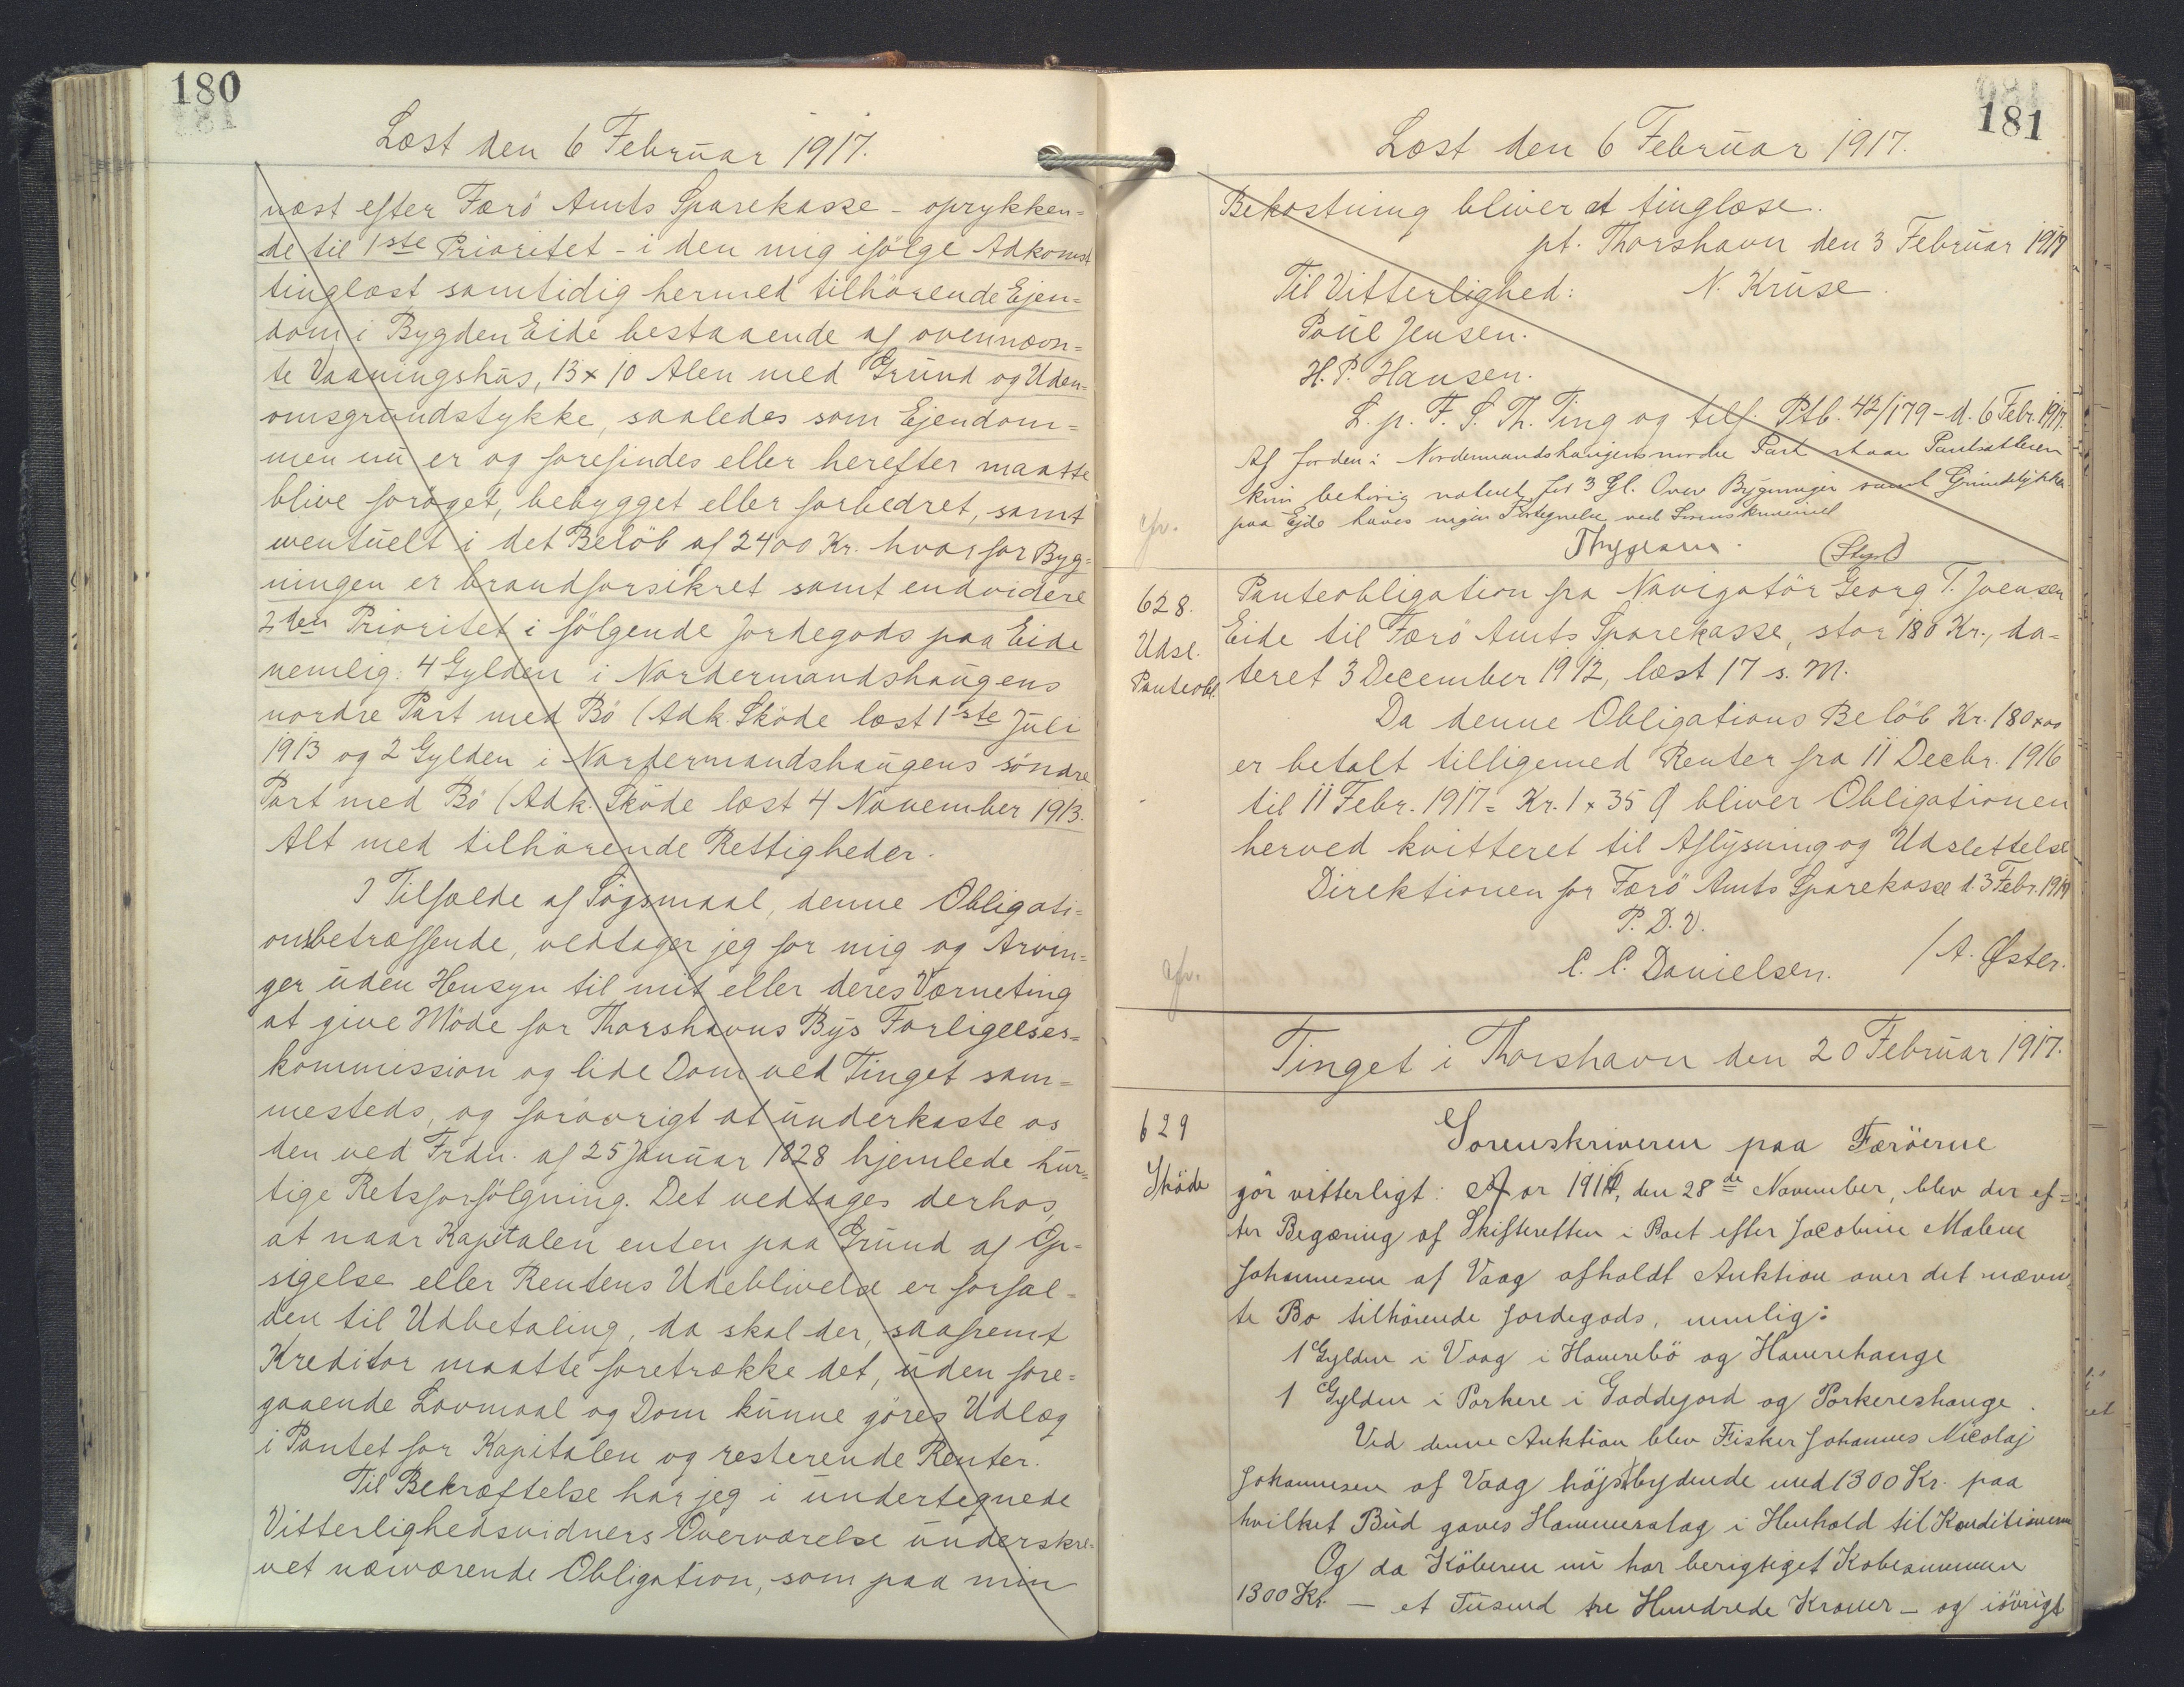 180
Læst den 6 Februar 1917.
næst efter Færö Amts Sparekasse - oprykken=
de til 1ste Prioritet - i den mig ifölge Adkomst
tinglæst samtidig hermed tilhörende Ejen=
dom i Bygden Eide bestaaende af ovennævn=
te Vaaningshus, 13 x 10 Alen med Grund og Uden=
omsgrundstykke, saaledes som Ejendom=
men nu er og forefindes eller herefter maatte
blive foröget, bebygget eller forbedret, samt
eventuelt i det Belöb af 2400 Kr. hvorfor Byg=
ningen er brandforsikret samt endvidere
2den Prioritet i fölgende Jordegods paa Eide
nemlig: 4 Gylden i Nordermandshaugens
nordre Part med Bö (Adk. Sköde læst 1ste Juli
1913 og 2 Gylden i Nordermandshaugens söndre
Part med Bö (Adk. Sköde læst 4 November 1913.
Alt med tilhörende Rettigheder.
I Tilfælde af Sögsmaal, denne Obligati=
onsbetræffende, vedtager jeg for mig og Arvin=
ger uden Hensyn til mit eller deres Værneting
at give Möde for Thorshavns Bys Forligelses=
kommission og lide Dom ved Tinget sam=
mesteds, og foravrigt at underkaste os
den ved Frdn. af 25 Januar 1828 hjemlede hur=
tige Retsforfölgning. Det vedtages derhos,
at naar Kapitalen enten paa Grund af Op=
sigelse eller Rentens Udeblivelse er forfal=
den til Udbetaling, da skal der, saafremt
Kreditor maatte foretrække det, uden fore=
gaaende Lovmaal og Dom kunne göres Udlæg
i Pantet for Kapitalen og resterende Renter.
Til Bekræftelse har jeg i undertegnede
Vitterlighedsvidners Overværelse underskre=
vet nærværende Obligation, som paa min
181
Læst den 6 Februar 1917.
Bekostning bliver at tinglæse.
pt. Thorshavn den 3 Februar 1917
Til Vitterlighed: N. Kruse.
Poul Jensen.
H. P. Hansen.
L. p. F. S. Th. Ting og tilf. Ptb. 42/179 - d. 6 Febr. 1917.
Af Jorden i Nordermandshaugens nordre Part staar Pantsætteren
kun behörig noteret for 3 Gl. Over Bygninger samt Grundstykker
paa Ejde haves ingen Fortegnelse ved Sorenskriveriet
(Stpl)
628.
Udsl.
Panteobl.
Panteobligation fra Navigatör Georg T. Joensen
Eide til Færö Amts Sparekasse, stor 180 Kr., da=
teret 3 December 1912, læst 17 s. M.
Da denne Obligations Belöb Kr. 180 x 00
er betalt tilligemed Renter fra 11 Decbr. 1916
til 11 Febr. 1917 = Kr. 1 x 35 Ø bliver Obligationen
herved kvitteret til Aflysning og Udslettelse
Direktionen for Færö Amts Sparekasse d. 3 Febr. 1917
P. D. V.
C. C. Danielsen. / A. Øster.
Tinget i Thorshavn den 20 Februar 1917.
629
Sköde
Sorenskriveren paa Færöerne
gör vitterligt: Aar 1914, den 28de November, blev der ef=
ter Begæring af Skifteretten i Boet efter Jacobine Malene
Johannesen af Vaag afholdt Auktion over det nævn=
te Bo tilhörende Jordegods, nemlig:
1 Gylden i Vaag i Haurebö og Haurehauge
1 Gylden i Porkere i Gaddejord og Porkereshauge.
Ved denne Auktion blev Fisker Johannes Nicolaj
Johannesen af Vaag höjstbydende med 1300 Kr. paa
hvilket Bud gaves Hammerslag i Henhold til Konditionerne
Og da Köberen nu har berigtiget Kobesummen
1300 Kr. - et Tusend tre Hundrede Kroner - og iövrigt